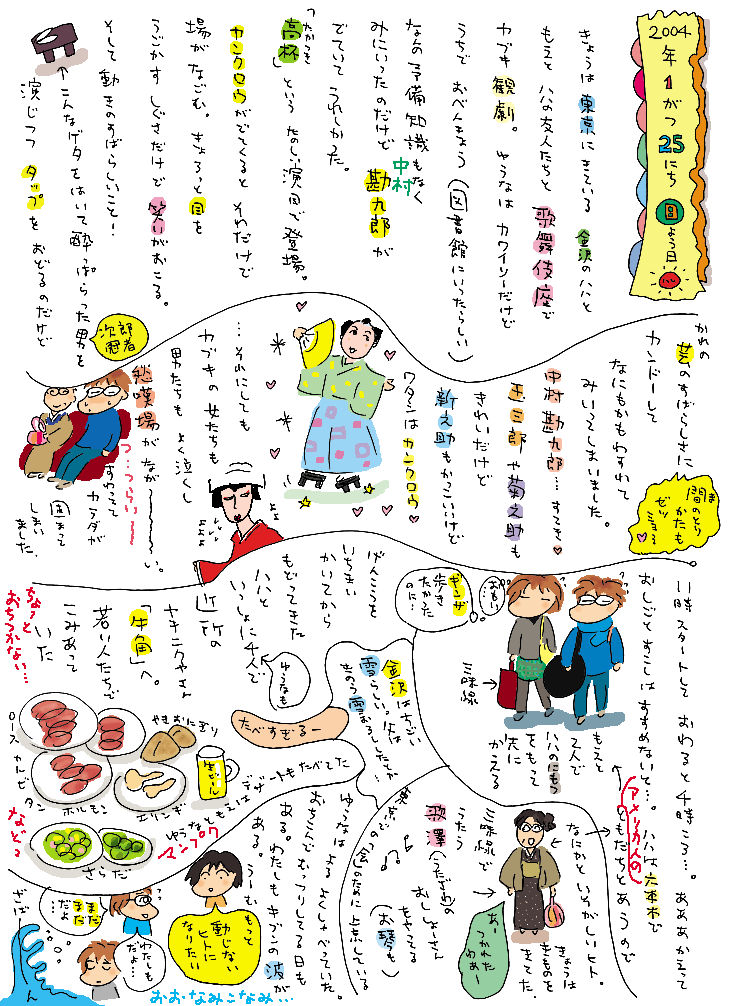 2004年1がつ25にち
日よう日
きょうは東京にきている金沢のハハと
もえとハハの友人たちと歌舞伎座で
カブキ観劇。ゆうなはカワイソーだけど
うちでおべんきょう(図書館にいったらしい)
なんの予備知識もなく
みにいったのだけど中村勘九郎が
でていてうれしかった。
「高杯」というたのしい演目で登場。
カンクロウがでてくるとそれだけで
場がなごむ。きょろっと目を
うごかすしぐさだけで笑いがおこる。
そして動きのすばらしいこと!
↑こんなゲタをはいて酔っぱらった男を
演じつつタップをおどるのだけど
次郎冠者
かれの芸のすばらしさに
カンドーして
なにもかもわすれて
みいってしまいました。
間のとりかたもゼツミョ〜
中村勘九郎…すてき
玉三郎や菊之助も
きれいだけど
新之助もかっこいいけど
ワタシはカンクロウ
…それにしても
カブキの女たちも
男たちもよく泣くし
愁嘆場がなが〜〜い。
つ…つらい〜
すわってカラダが
固まってしまいました。
よよ
よよよ
11時スタートしておわると4時ころ…。ああかえって
おしごとすこしはすすめないと…。ハハは六本木で
アメリカ人の
ともだちとあうので
もえと2人で
ハハのにもつをもって
先にかえる
おもい…
ギンザ歩きたかったのに…
三味線→
なにかといそがしいヒト。
きょうはきものをきてた
あーつかれたわあー
三味線で
うたう
歌澤(うたざわ)の
おしょーさん
をやってる
(お琴も)
げんこうを
いちまい
かいてから
もどってきた
ハハと
いっしょに4人で
ゆうなも
近所の
ヤキニクやさん
「牛角」へ。
若い人たちで
こみあって
いた
ちょっとおちつかない…
金沢はすごい
雪らしい。父は
きのう雪おろししたとか…
たべすぎるー
ロース
カルビ
タン
ホルモン
やきおにぎり
エリンギ
生ビール
さらだ
などなど
ゆうなともえはデザートもたべてた
マンプク
ゆうなはよるよくしゃべっていた。
おちこんでむっつりしてる日も
ある。わたしもキブンの波が
ある。うーむもっと
動じないヒトになりたい
まだまだだよ
わたしもだよ…
ざばーん
おおなみこなみ…